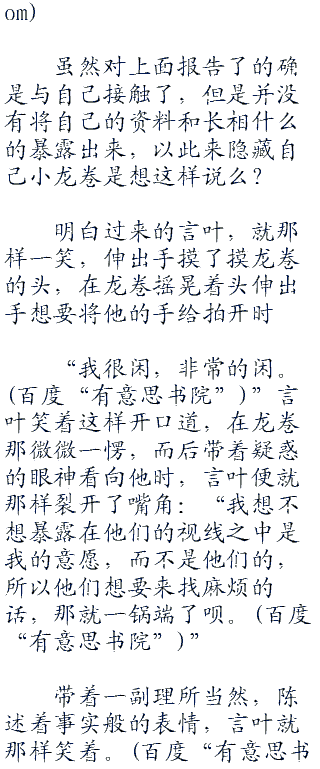 om)
虽然对上面报告了的确
是与自己接触了，但是并没
有将自己的资料和长相什么
的暴露出来，以此来隐藏自
己小龙卷是想这样说么？
明白过来的言叶，就那
样一笑，伸出手摸了摸龙卷
的头，在龙卷摇晃着头伸出
手想要将他的手给拍开时
“我很闲，非常的闲。
(百度“有意思书院”)”言
叶笑着这样开口道，在龙卷
那微微一愣，而后带着疑惑
的眼神看向他时，言叶便就
那样裂开了嘴角：“我想不
想暴露在他们的视线之中是
我的意愿，而不是他们的，
所以他们想要来找麻烦的
话，那就一锅端了呗。(百度
“有意思书院”)”
带着一副理所当然，陈
述着事实般的表情，言叶就
那样笑着。(百度“有意思书